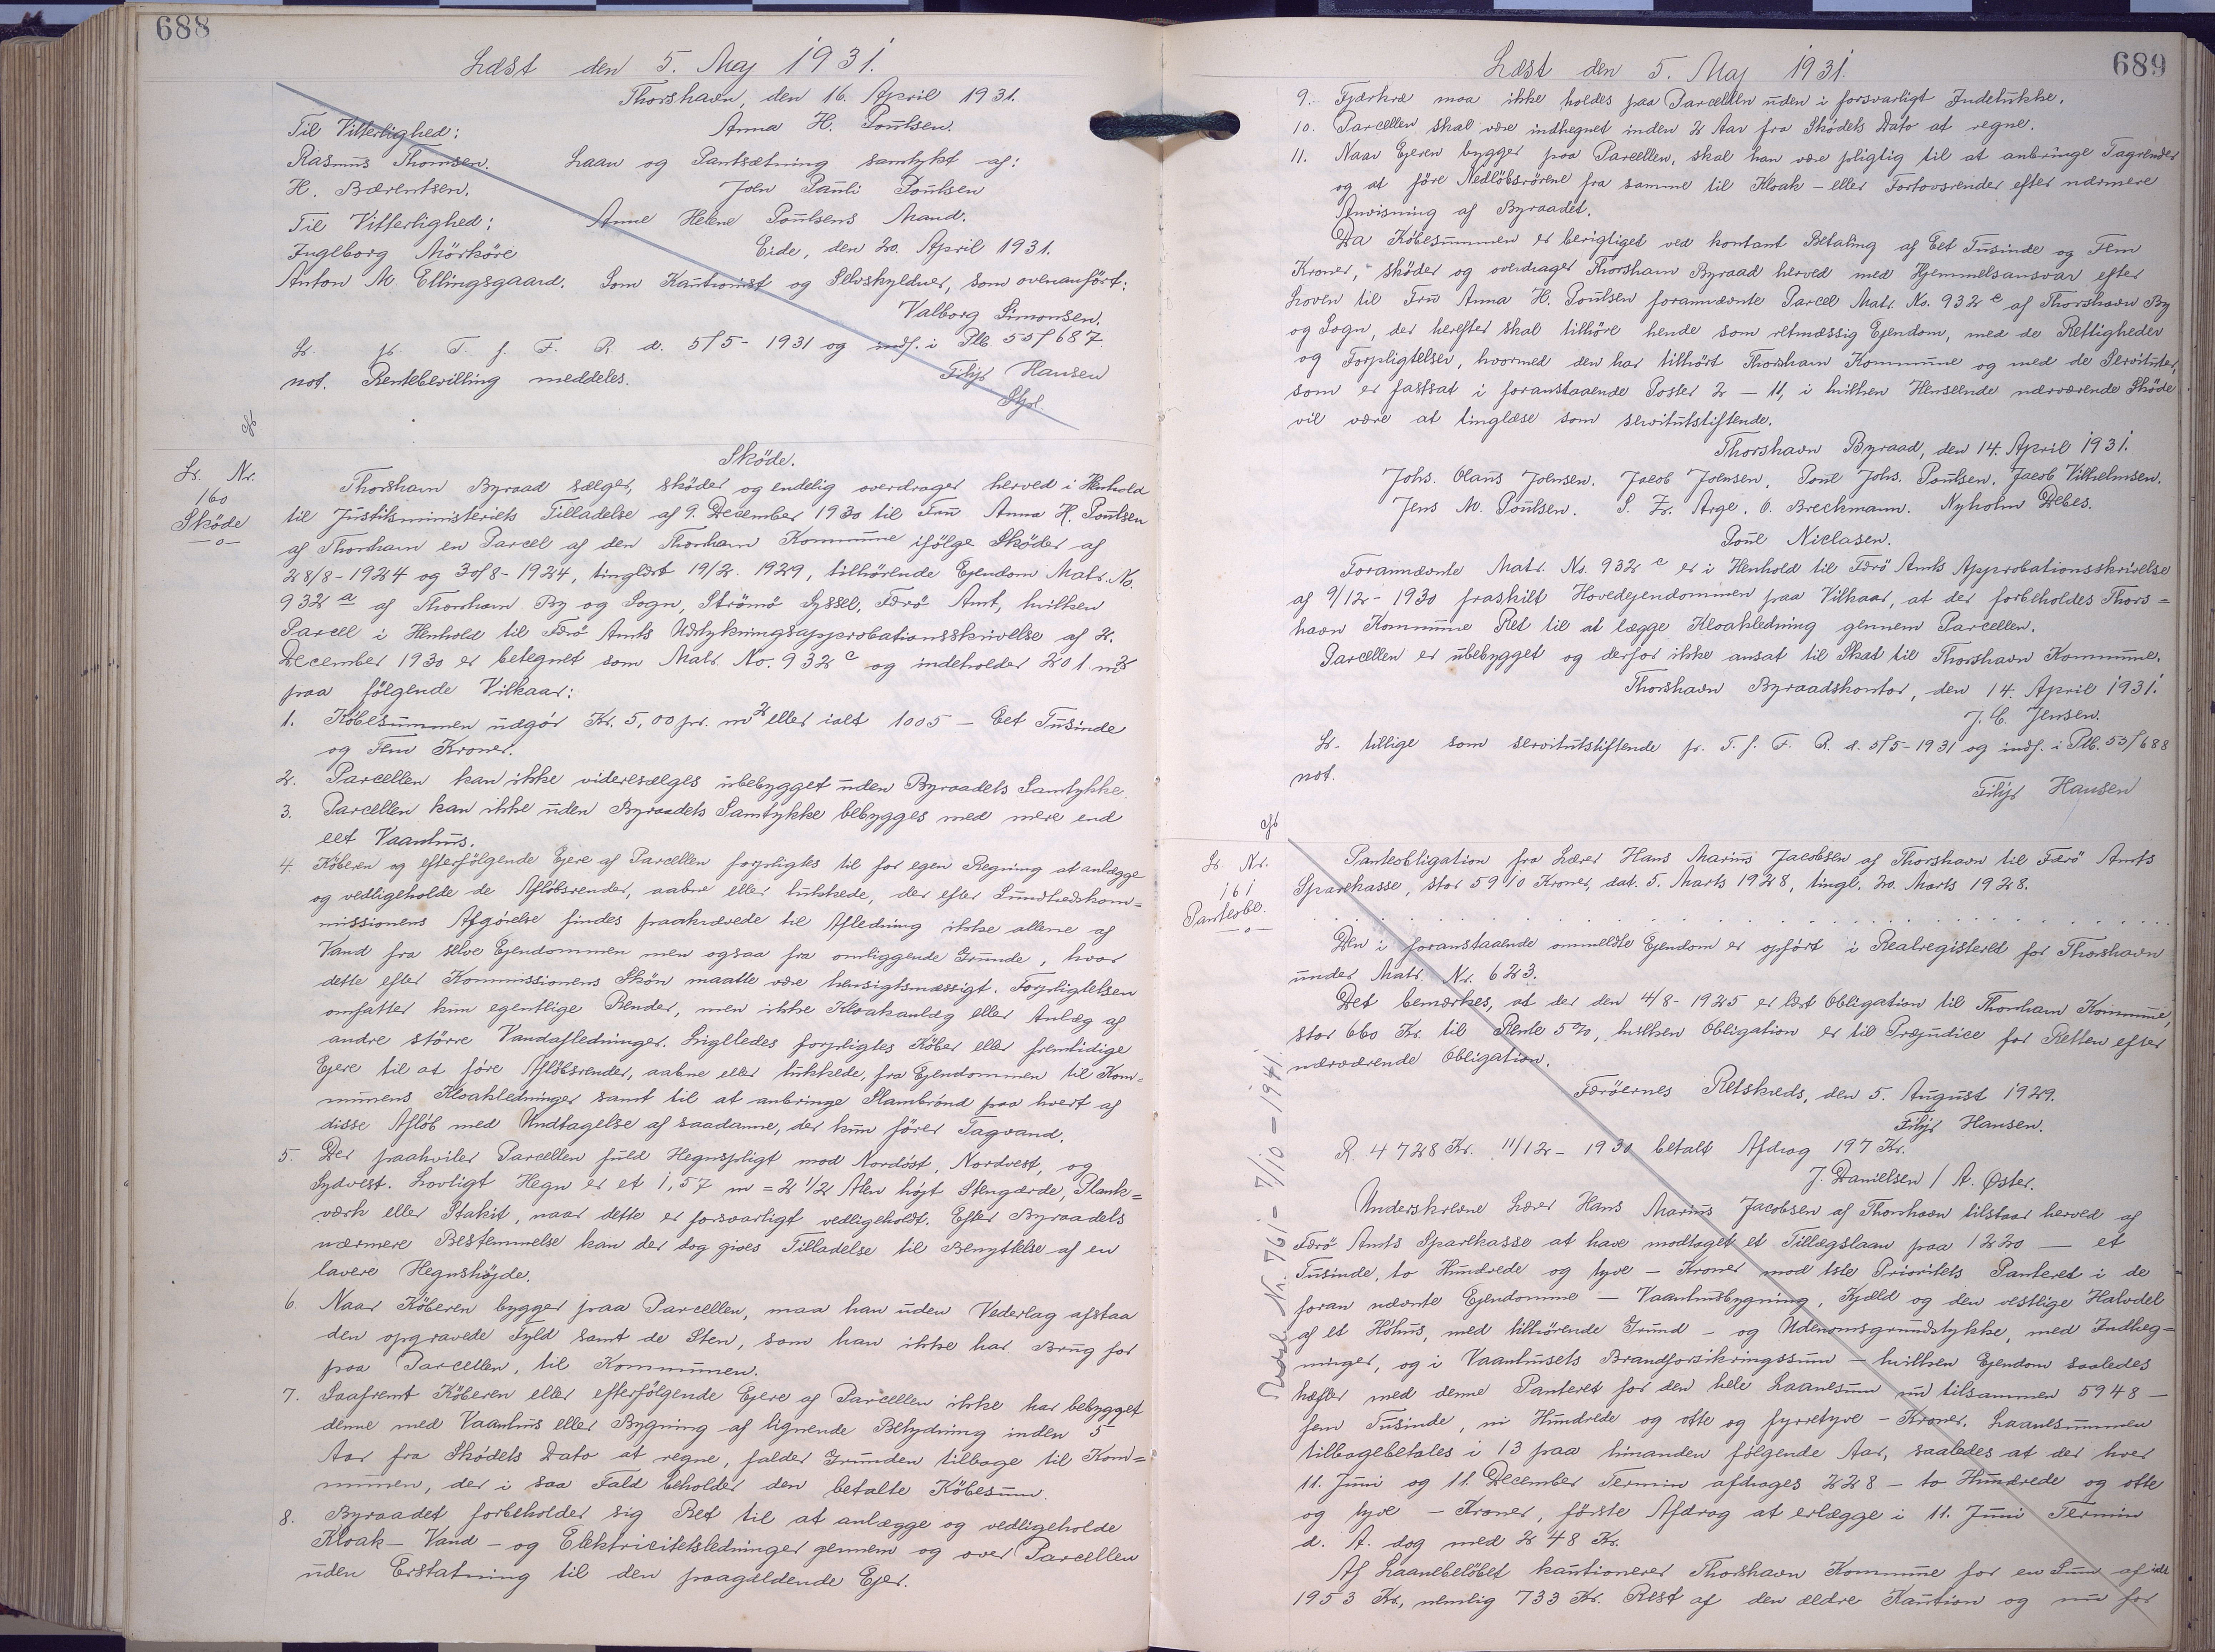 688
Læst den 5. Maj 1931.
Thorshavn, den 16. April 1931.
Til Vitterlighed: Anna H. Poulsen.
Rasmus Thomsen. Laan og Pantsætning samtykt af:
H. Bærentsen. Joen Pauli Poulsen
Til Vitterlighed: Anne Helene Poulsens Mand.
Ingeborg Mörköre Eide, den 20. April 1931.
Anton M. Ellingsgaard. Som Kautionist og Selvskyldner, som ovenanført:
Valborg Simonsen.
Lr. pr. T. f. F. R. d. 5/5-1931 og indf. i Ptb. 55/687
not. Rentebevilling meddeles. Filip Hansen
Skøde.
Lr. Nr.
160
Skøde
Thorshavn Byraad sælger, skøder og endelig overdrager herved i Henhold
til Justitsministeriets Tilladelse af 9. December 1930 til Fru Anna H. Poulsen
af Thorshavn en Parcel af den Thorshavn Kommune ifølge Skøder af
28/8-1924 og 30/8-1924, tinglæst 19/2. 1929, tilhørende Ejendom Matr. No.
932 a af Thorshavn By og Sogn, Strömö Syssel, Færö Amt, hvilken
Parcel i Henhold til Færö Amts Udstykningsapprobationsskrivelse af 2.
December 1930 er betegnet som Matr. No. 932 c og indeholder 201 m2
paa følgende Vilkaar:
1. Købesummen udgör Kr. 5,00 pr. m2 eller ialt 1005 — Eet Tusinde
og Fem Kroner.
2. Parcellen kan ikke videresælges ubebygget uden Byraadets Samtykke.
3. Parcellen kan ikke uden Byraadets Samtykke bebygges med mere end
eet Vaanhus.
4. Køberen og efterfølgende Ejere af Parcellen forpligtes til for egen Regning at anlægge
og vedligeholde de Afløbsrender, aabne eller lukkede, der efter Sundhedskom=
missionens Afgørelse findes paakrævede til Afledning ikke allene af
Vand fra selve Ejendommen men ogsaa fra omliggende Grunde, hvor
dette efter Kommissionens Skön maatte være hensigtsmæssigt. Forpligtelsen
omfatter kun egentlige Render, men ikke Kloakanlæg eller Anlæg af
andre större Vandafledninger. Ligeledes forpligtes Köber eller fremtidige
Ejere til at före Aflöbsrender, aabne eller lukkede, fra Ejendommen til Kom=
munens Kloakledninger samt til at anbringe Slambrönd paa hvert af
disse Afløb med Undtagelse af saadanne, der kun förer Tagvand.
5. Der paahviler Parcellen fuld Hegnspligt mod Nordöst, Nordvest, og
Sydvest. Lovligt Hegn er et 1,57 m = 2 1/2 Alen højt Stengærde, Plank=
værk eller Stakit, naar dette er forsvarligt vedligeholdt. Efter Byraadets
nærmere Bestemmelse kan der dog gives Tilladelse til Benyttelse af en
lavere Hegnshöjde.
6. Naar Köberen bygger paa Parcellen, maa han uden Vederlag afstaa
den opgravede Fyld samt de Sten, som han ikke har Brug for
paa Parcellen, til Kommunen.
7. Saafremt Köberen eller efterfölgende Ejere af Parcellen ikke har bebygget
denne med Vaanhus eller Bygning af lignende Betydning inden 5
Aar fra Skødets Dato at regne, falder Grunden tilbage til Kom=
munen, der i saa Fald beholder den betalte Købesum.
8. Byraadet forbeholder sig Ret til at anlægge og vedligeholde
Kloak- Vand- og Elektricitetsledninger gennem og over Parcellen
uden Erstatning til den paagældende Ejer.
689
Læst den 5. Maj 1931.
9. Fjærkræ maa ikke holdes paa Parcellen uden i forsvarligt Indelukke.
10. Parcellen skal være indhegnet inden 2 Aar fra Skødets Dato at regne.
11. Naar Ejeren bygger paa Parcellen, skal han være pligtig til at anbringe Tagrender
og at före Nedløbsrörene fra samme til Kloak- eller Fortovsrender efter nærmere
Anvisning af Byraadet.
Da Købesummen er berigtiget ved kontant Betaling af Eet Tusinde og Fem
Kroner, skøder og overdrager Thorshavn Byraad herved med Hjemmelsansvar efter
Loven til Fru Anna H. Poulsen forannævnte Parcel Matr. No. 932 c af Thorshavn By
og Sogn, der herefter skal tilhöre hende som retmæssig Ejendom, med de Rettigheder
og Forpligtelser, hvormed den har tilhørt Thorshavn Kommune og med de Servituter,
som er fastsat i foranstaaende Poster 2 — 11, i hvilken Henseende nærværende Skøde
vil være at tinglæse som servitutstiftende.
Thorshavn Byraad, den 14. April 1931.
Johs. Olaus Joensen. Jacob Joensen. Poul Johs. Poulsen. Jacob Vilhelmsen.
Jens M. Poulsen. S. Fr. Arge. O. Breckmann. Nyholm Debes.
Poul Niclasen.
Forannævnte Matr. No. 932 c er i Henhold til Færö Amts Approbationsskrivelse
af 9/12-1930 fraskilt Hovedejendommen paa Vilkaar, at der forbeholdes Thors=
havn Kommune Ret til at lægge Kloakledning gennem Parcellen.
Parcellen er ubebygget og derfor ikke ansat til Skat til Thorshavn Kommune.
Thorshavn Byraadskontor, den 14. April 1931.
J. C. Jensen.
Lr. tillige som servitutstiftende pr. T. f. F. R. d. 5/5-1931 og indf. i Ptb. 55/688
not.
Filip Hansen
Lr Nr.
161
Panteobl.
Panteobligation fra Lærer Hans Marius Jacobsen af Thorshavn til Færö Amts
Sparekasse, stor 5910 Kroner, dat. 5. Marts 1928, tingl. 20. Marts 1928.
Den i foranstaaende ommeldte Ejendom er opført i Realregisteret for Thorshavn
under Matr. Nr. 623.
Det bemærkes, at der den 4/8-1925 er læst Obligation til Thorshavn Kommune,
stor 660 Kr. til Rente 5%, hvilken Obligation er til Præjudice for Retten efter
nærværende Obligation.
Færöernes Retskreds, den 5. August 1929.
Filip Hansen.
R. 4728 Kr. 11/12-1930 betalt Afdrag 197 Kr.
J. Danielsen / A. Øster.
Underskrevne Lærer Hans Marius Jacobsen af Thorshavn tilstaar herved af
Færö Amts Sparekasse at have modtaget et Tillægslaan paa 1220 — et
Tusinde, to Hundrede og tyve — Kroner mod 1ste Prioritets Panteret i de
foran nævnte Ejendomme — Vaanhusbygning, Kjæld og den vestlige Halvdel
af et Höhus, med tilhörende Grund- og Udenomsgrundstykke, med Indheg=
ninger, og i Vaanhusets Brandforsikringssum — hvilken Ejendom saaledes
hæfter med denne Panteret for den hele Laanesum nu tilsammen 5948 —
fem Tusinde, ni Hundrede og otte og fyrretyve — Kroner. Laanesummen
tilbagebetales i 13 paa hinanden følgende Aar, saaledes at der hver
11. Juni og 11. December Termin afdrages 228 — to Hundrede og otte
og tyve — Kroner, første Afdrag at erlægge i 11. Juni Termin
d. A. dog med 248 Kr.
Af Laanebeløbet kautionerer Thorshavn Kommune for en Sum af ialt
1953 Kr., nemlig 733 Kr. Rest af den ældre Kaution og nu for
Nr. 761 - 7/10 - 1941